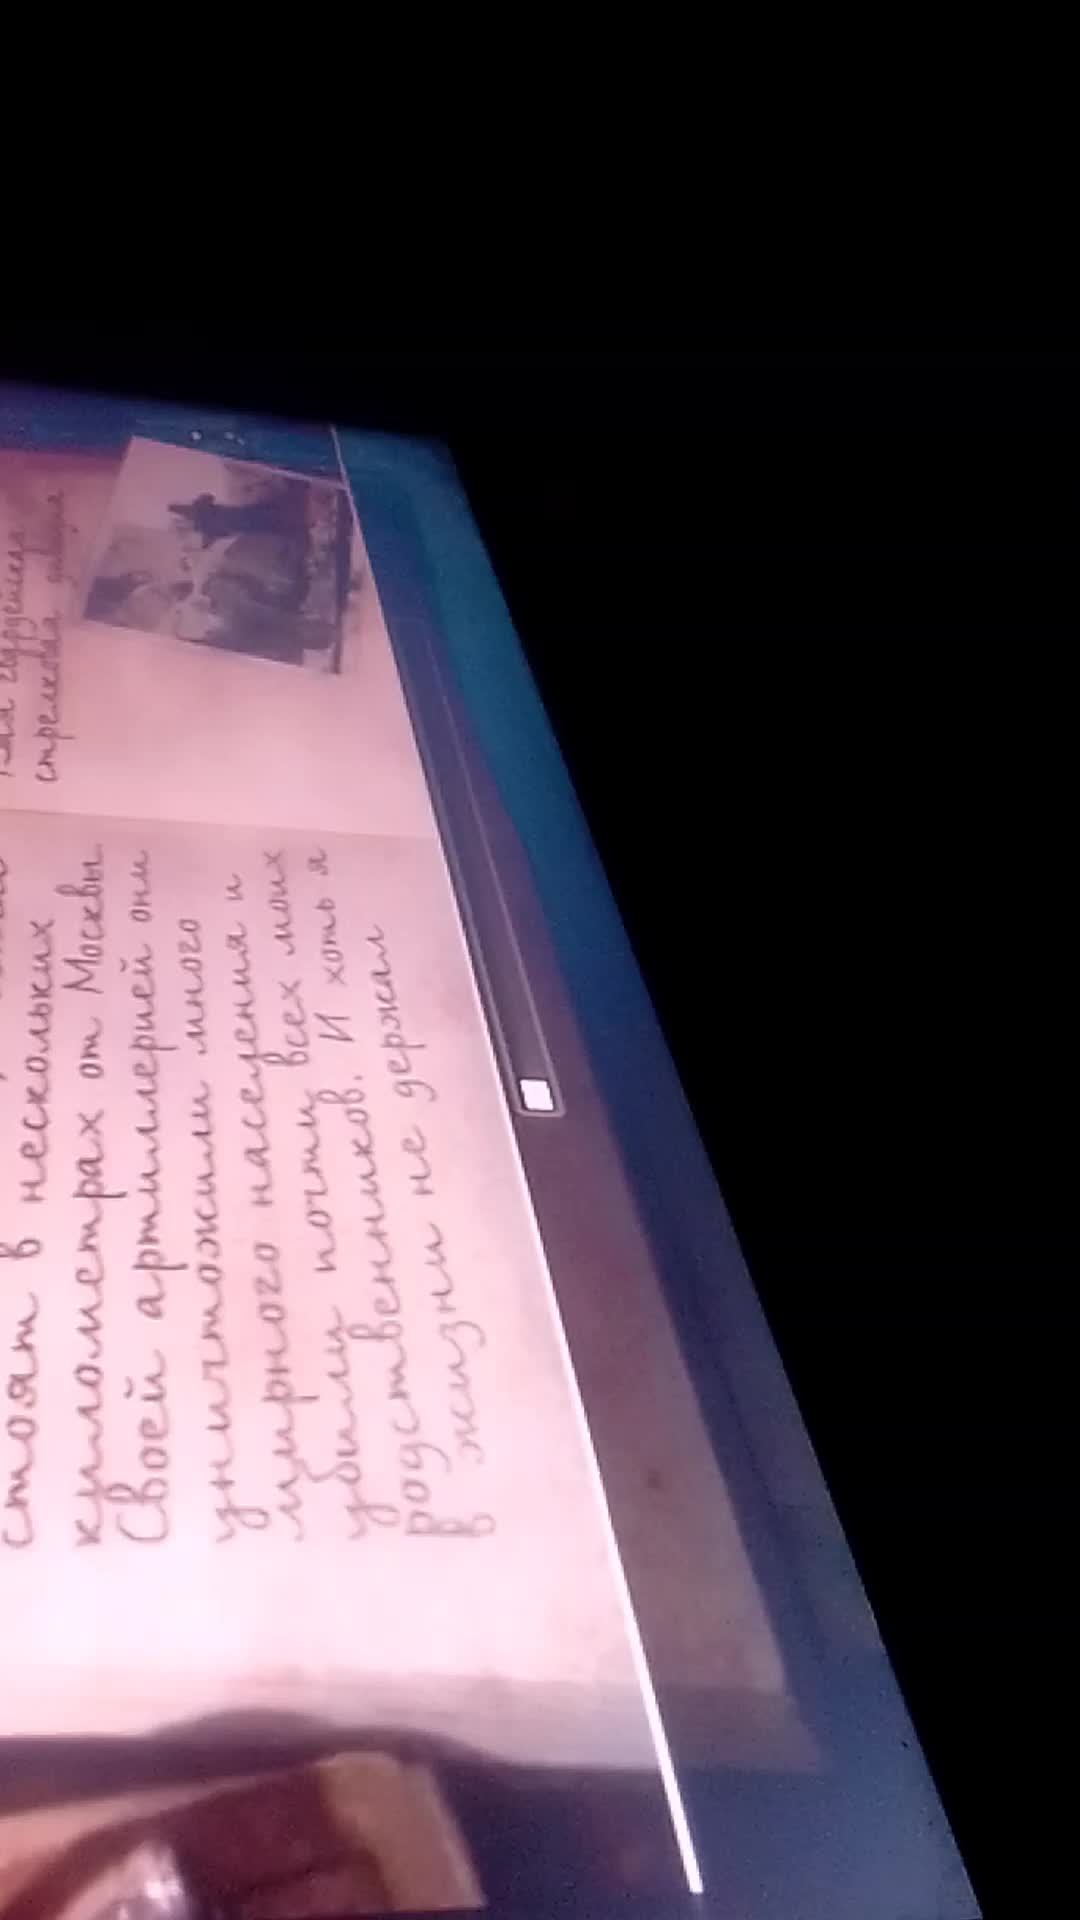 стоят в нескольких
километрах от Москвы.
Своей артиллерией они
уничтожили много
мирного населения и
убили почти всех моих
родственников. И хоть я
в жизни не держал
стрелковая дивизия